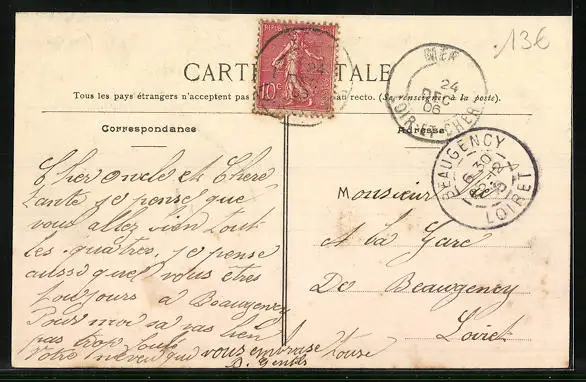 13€
CARTE POSTALE
Tous les pays étrangers n'acceptent pas au recto. (Se renseigner à la poste).
10c
MER
24
DEC
06
LOIR-ET-CHER
Correspondance
Adresse
BEAUGENCY
6 30
LOIRET
Cher oncle et Chère
tante je pense que
vous allez bien tout
les quatres, je pense
aussi que vous êtes
toujours a Beaugency
Pour moi sa vas bien
pas trop
Votre neveu qui vous embrasse tous
Monsieur
A la Gare
De Beaugency
Loiret